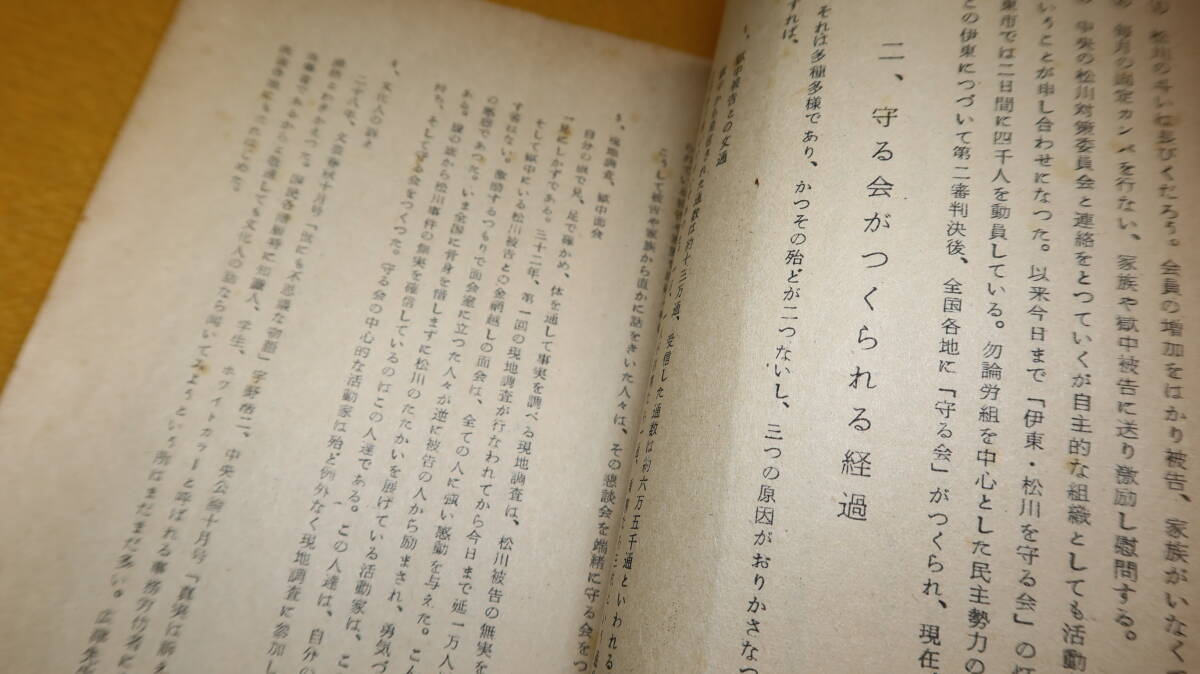 松川の
会員の増加をはかり被告、家族がいなく
毎月の固定カンパを行ない、家族や獄中被告に送り激励し慰問する。
中央の松川対策委員会と連絡をとつていくが自主的な組織としても活動
いうことが申し合わせになつた。以来今日まで「伊東・松川を守る会」の
東市では二日間に四千人を動員している。勿論労組を中心とした民主勢力の
この伊東につづいて第二審判決後、全国各地に「守る会」がつくられ、現在
二、守る会がつくられる経過
それは多種多様であり、かつその殆どが二つないし、三つの原因がおりかさなつ
すれば、
1、獄中被告との文通
獄中から発信された通数は約十三万通、受信した通数は約六万五千通といわれる
こうして被告や家族から直かに話をきいた人々は、その懇談会を端緒に守る会をつ
3、現地調査、獄中面会
自分の眼で見、足で確かめ、体を通して事実を調べる現地調査は、松川被告の無実を
一見にしかずである。三十二年、第一回の現地調査が行なわれてから今日まで延一万人
そして獄中にいる松川被告との金網越しの面会は、全ての人に強い感動を与えた。こん
す筈はない。激励するつもりで面会室に立つた人々が逆に被告の人から励まされ、勇気づ
の感想であつた。いま全国に骨身を惜しまずに松川のたたかいを展げている活動家は、こ
ある。心の底から松川事件の無実を確信しているのはこの人達である。この人達は、自分の
持ち、そして守る会をつくつた。守る会の中心的な活動家は殆ど例外なく現地調査に参加し
4、文化人の訴え
二十八年、文芸春秋十月号「世にも不思議な物語」宇野浩二、中央公論十月号「真実は訴え
知識人、学生、ホワイトカラーと呼ばれる事務労働者に
文化人の話なら聞いてみようという所はまだまだ多い。広津先